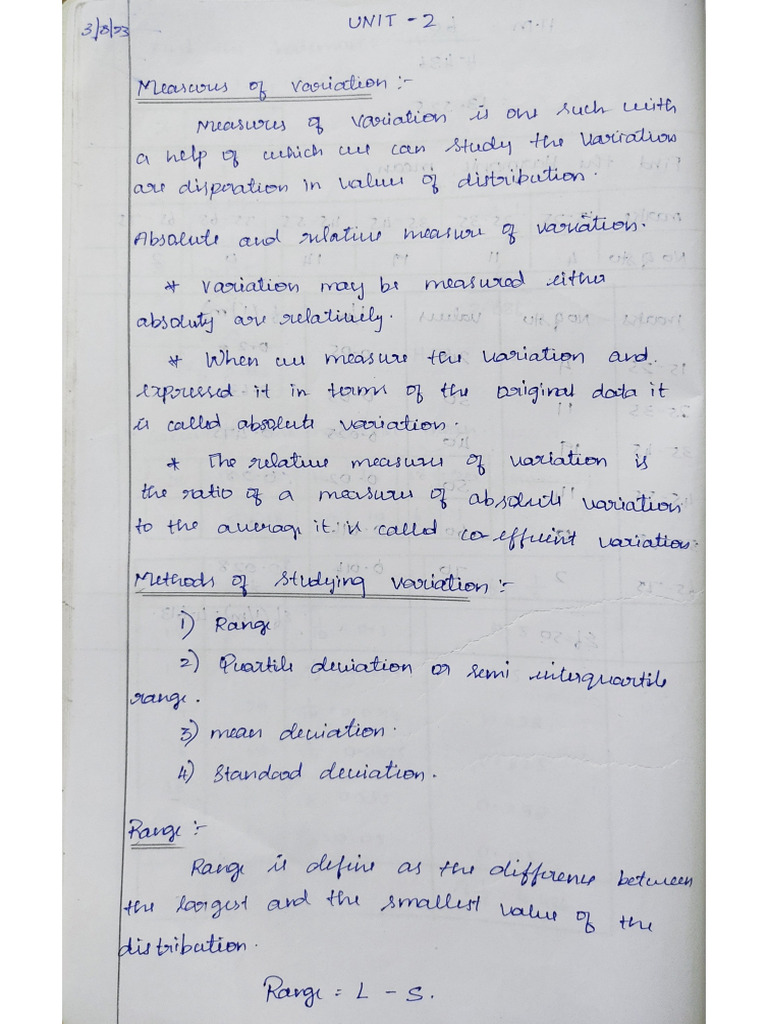 3/8/23
UNIT - 2
Measures of variation :-
Measures of variation is one such with
a help of which we can study the variation
are disperation in values of distribution.
Absolute and relative measure of variation.
* Variation may be measured either
absoluty are relatively.
* When we measure the variation and
expressed it in terms of the original data it
is called absolute variation.
* The relative measure of variation is
the ratio of a measure of absolute variation
to the average it is called co-efficient variation.
Methods of studying variation :-
1) Range
2) Quartile deviation or semi interquartile
range.
3) mean deviation.
4) Standard deviation.
Range :-
Range is define as the difference between
the largest and the smallest value of the
distribution.
Range = L - S.